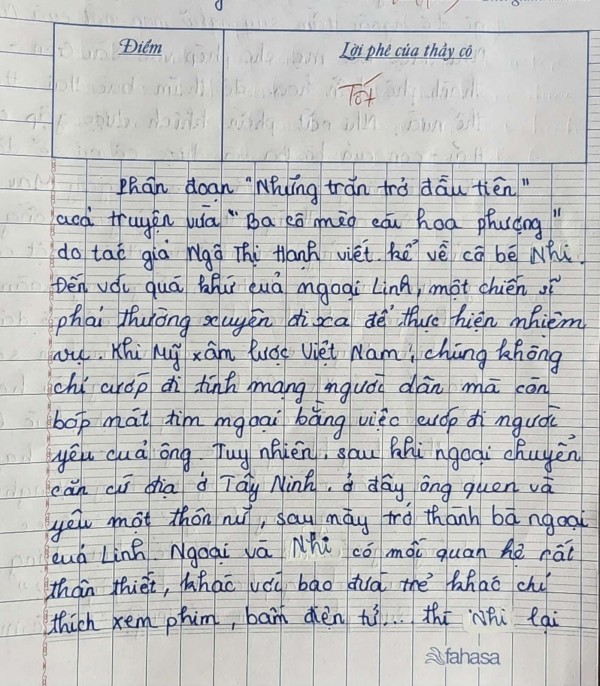 Điểm
Lời phê của thầy cô
Tốt
Phân đoạn "Những trăn trở đầu tiên"
cuả truyện vừa "Ba cô mèo câu hoa phượng"
do tác giả Ngô Thị Hạnh viết. kể về cô bé Nhi.
Đến với quá khứ cuả ngoại Linh, một chiến sĩ
phải thường xuyên đi xa để thực hiện nhiệm
vụ. Khi Mỹ xâm lược Việt Nam, chúng không
chỉ cướp đi tính mạng người dân mà còn
bóp mát tim ngoại bằng việc cướp đi người
yêu cuả ông. Tuy nhiên, sau khi ngoại chuyển
căn cứ địa ở Tây Ninh. ở đây ông quen và
yêu một thôn nữ, sau này trở thành bà ngoại
cuả Linh. Ngoại và Nhi có mối quan hệ rất
thân thiết, khác với bao đưá trẻ khác chỉ
thích xem phim, bấm điện tử... thì Nhi lại
fahasa